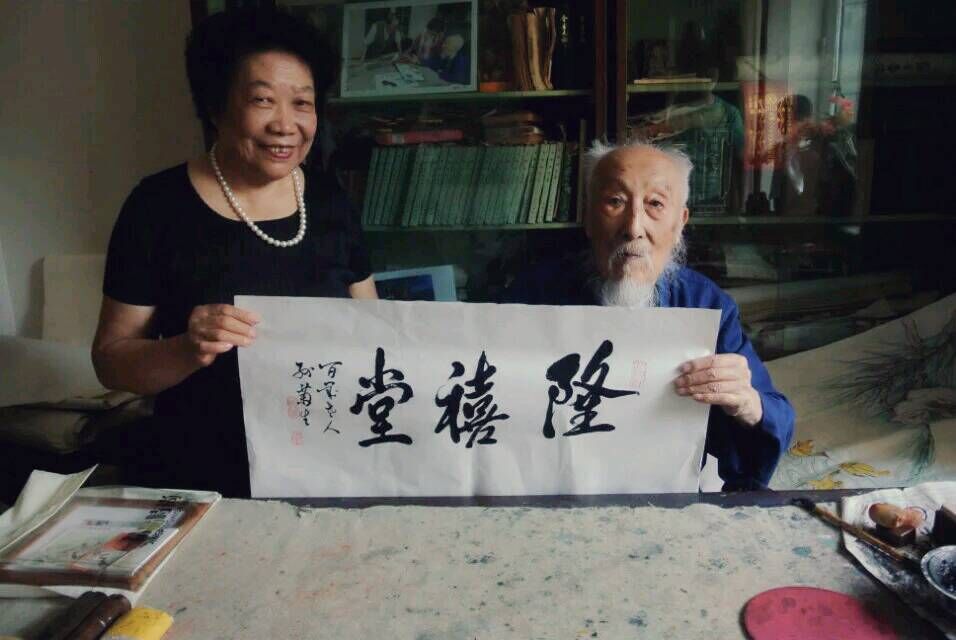 隆禧堂
百岁老人
孙菊生